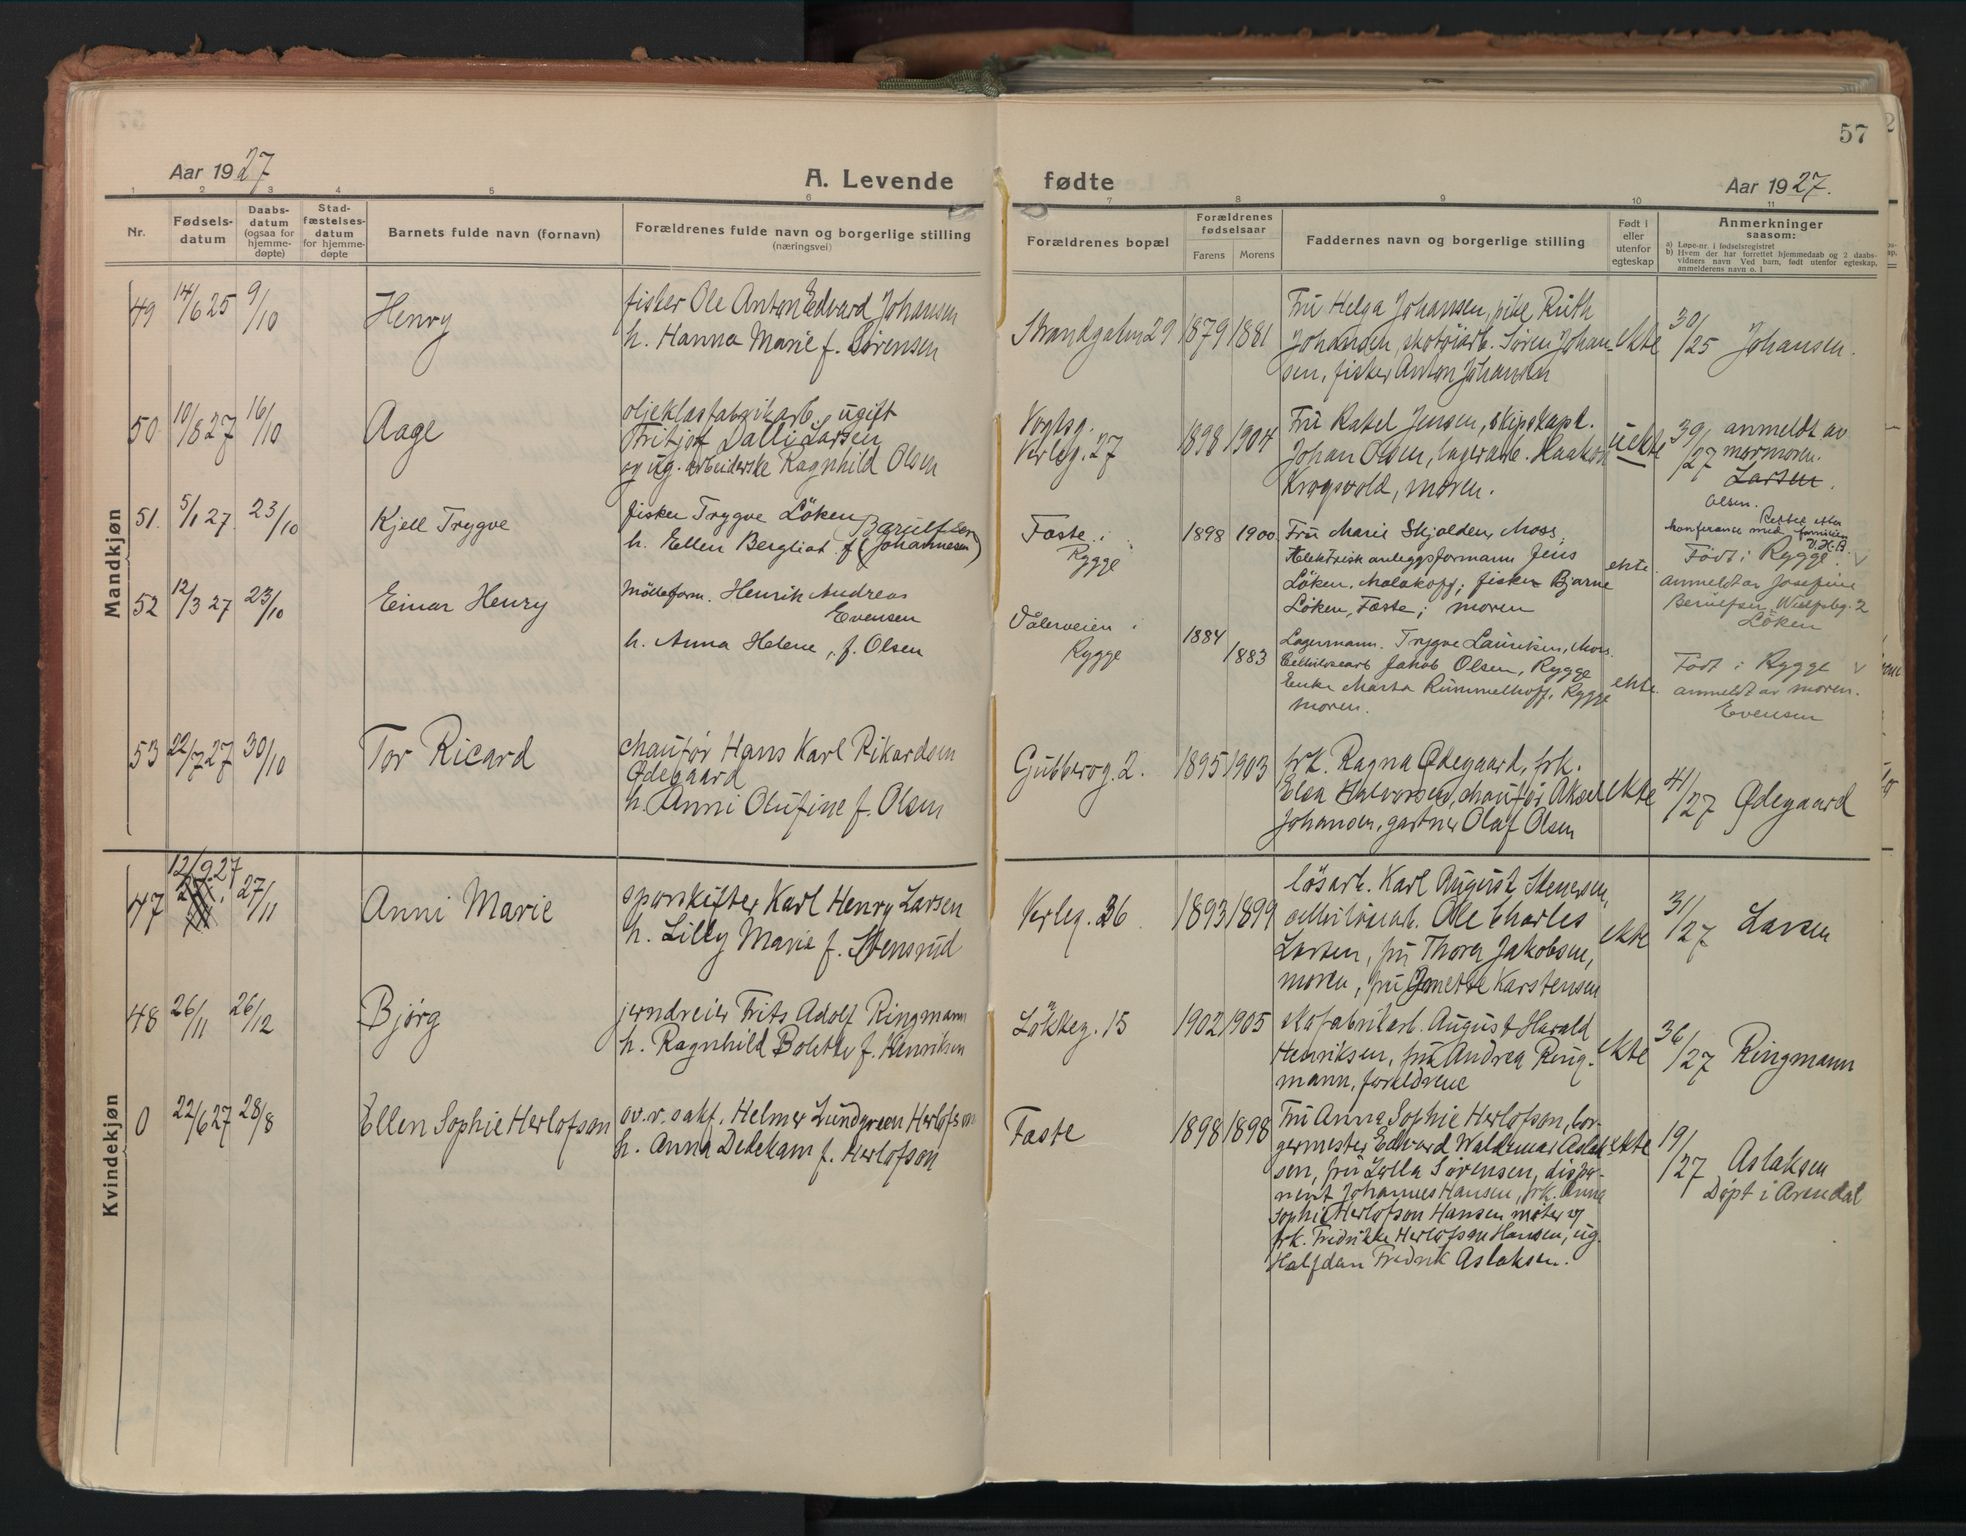 57
Aar 1927
A. Levende fødte
Aar 1927.
1 2 3 4 5 6 7 8 9 10 11
Nr.
Fødsels-
datum
Daabs-
datum
(ogsaa for
hjemme-
døpte)
Stad-
fæstelses-
datum
for hjemme-
døpte
Barnets fulde navn (fornavn)
Forældrenes fulde navn og borgerlige stilling
(næringsvei)
Forældrenes bopæl
Forældrenes
fødselsaar
Farens Morens
Faddernes navn og borgerlige stilling
Født i
eller
utenfor
egteskap
Anmerkninger
saasom:
a) Løpe-nr. i fødselsregistret
b) Hvem der har forrettet hjemmedaab og 2 daabs-
vidners navn Ved barn, født utenfor egteskap,
anmelderens navn o. l
Mandkjøn
49 14/6 25 9/10 Henry
fisker Ole Anton Edvard Johansen
h. Hanna Marie f. Sørensen
Strandgaten 29 1879 1881
Fru Helga Johansen, pike Ruth
Johansen, skotøiarb. Søren Johan-
sen, fisker Anton Johansen
ekte 30/25 Johansen.
50 10/8 27 16/10 Aage
oljeklæsfabrikarb. ugift
Fritjof Dalli Larsen
og ug. arbeiderske Ragnhild Olsen
Vogtsg.
Verleg. 27 1898 1904
Fru Rakel Jensen, skipskapt.
Johan Olsen, lagerarb. Haakon
Krogsvold, moren.
uekte 39/27 anmeldt av
mormoren.
Larsen.
Olsen.
51. 5/1 27. 23/10 Kjell Trygve
fisker Trygve Löken
h. Ellen Bergliot f. (Johannesen) Berulfsen
Faste i
Rygge 1898 1900
Fru Marie Skjolden, Moss,
elektrisk anleggsformann Jens
Löken, Malakoff; fisker Bjarne
Löken, Faste; moren
ekte.
Rettet efter
konferanse med familien
V.H.B.
Födt i Rygge. v
anmeldt av Josefine
Berulfsen. 2
Löken
52 12/3 27 23/10 Einar Henry
Mölleform. Henrik Andreas
Evensen
h. Anna Helene, f. Olsen
Vålerveien i
Rygge 1884 1883
Lagermann. Trygve Lauritsen, Moss.
Cellulosearb Jakob Olsen, Rygge
Enke Marta Rummelhoff, Rygge
moren.
ekte.
Födt i Rygge v
anmeldt av moren.
Evensen
53 22/7 27 30/10 Tor Ricard
chaufør Hans Karl Rikardsen
Ødegaard
h. Anni Olufine f. Olsen
Gubberog. 2. 1895 1903
frk. Ragna Ødegaard, frk.
Elsa Halvorsen, chaufør Aksel
Johansen, gartner Olaf Olsen
ekte 41/27 Ødegaard
Kvindekjøn
47 12/9.27 27/11 Anni Marie
sporskifter Karl Henry Larsen
h. Lilly Marie f. Stensrud
Verleg. 36. 1893 1899
løsarb. Karl August Stensen,
cellulosearb. Ole Charles
Larsen, fru Thora Jakobsen,
moren, fru Karstensen
ekte 31/27 Larsen
48 26/11 26/12 Bjørg
jerndreier Frits Adolf Ringmann
h. Ragnhild Bolette f. Henriksen
Løkkeg. 15 1902 1905
skofabrikarb. August Harald
Henriksen, fru Andrea Ring-
mann, foreldrene
ekte 36/27 Ringmann
0 22/6 27 28/8 Ellen Sophie Herlofson
ov.r.sakf. Helmer Lundgreen Herlofson
h. Anna Dedekam f. Herlofson
Faste 1898 1898
Fru Anna Sophie Herlofson, bor-
germester Edvard Waldemar Aslak-
sen, fru Lolla Sørensen, dispo-
nent Johannes Hansen, frk. Anna
Sophie Herlofson Hansen møter og
frk. Fredrikke Herlofson Hansen, ug.
Halfdan Fredrik Aslaksen.
ekte 19/27 Aslaksen
Døpt i Arendal